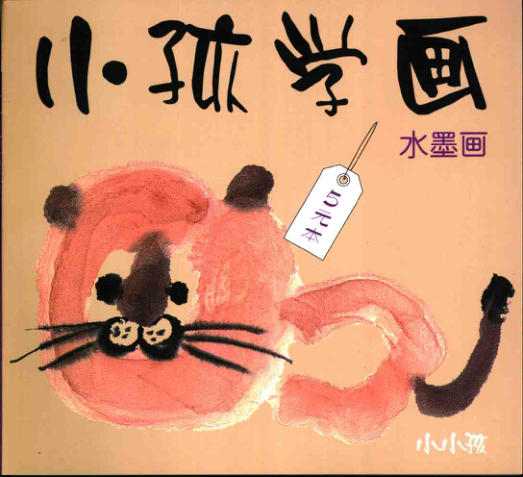 小孩学画
水墨画
5元本
小小孩